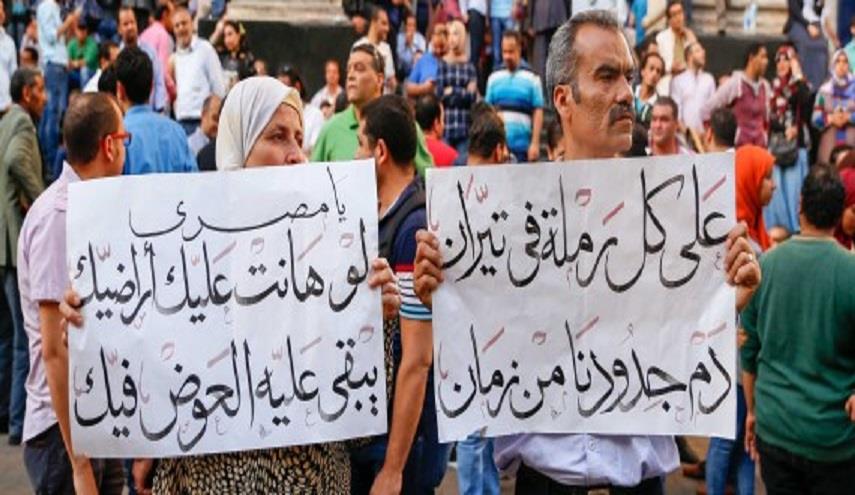 على كل رملة في تيران
دم جدودنا من زمان
يا مصرى
لو هانت عليك أراضيك
يبقى عليه العوض فيك